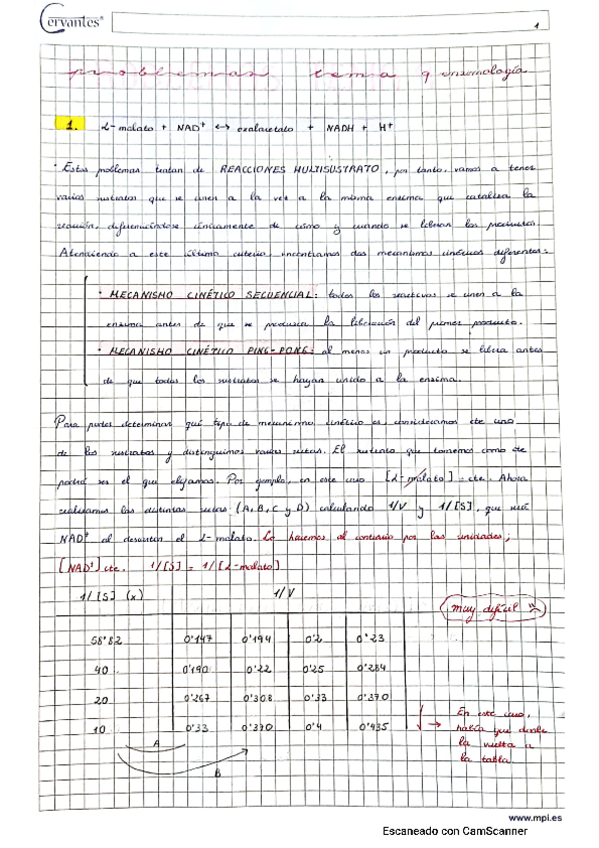 Cervantes®
1
problemas tema 9 enzimología
1. L-malato + NAD⁺ ↔ oxalacetato + NADH + H⁺
· Estos problemas tratan de REACCIONES MULTISUSTRATO, por tanto, vamos a tener
varios sustratos que se unen a la vez a la misma enzima que cataliza la
reacción, diferenciándose únicamente de cómo y cuando se liberan los productos.
Atendiendo a este último criterio, encontramos dos mecanismos cinéticos diferentes:
· MECANISMO CINÉTICO SECUENCIAL: todos los reactivos se unen a la
enzima antes de que se produzca la liberación del primer producto.
· MECANISMO CINÉTICO PING-PONG: al menos un producto se libera antes
de que todos los sustratos se hayan unido a la enzima.
Para poder determinar qué tipo de mecanismo cinético es, consideramos cte uno
de los sustratos y distinguimos varias rectas. El sustrato que tomemos como cte
podrá ser el que elijamos. Por ejemplo, en este caso [L-malato] = cte. Ahora
realizamos las distintas rectas (A, B, C y D) calculando 1/V y 1/[S], que será
NAD⁺ al descartar el L-malato. Lo hacemos al contrario por las unidades;
[NAD⁺] cte. 1/[S] = 1/[L-malato]
1/[S] (x) 1/V
muy difícil
58'82 0'147 0'194 0'2 0'23
40 0'190 0'22 0'25 0'284
20 0'267 0'308 0'33 0'370
10 0'33 0'370 0'4 0'435
A
B
→ En este caso,
había que darle
la vuelta a
la tabla
www.mpi.es
Escaneado con CamScanner